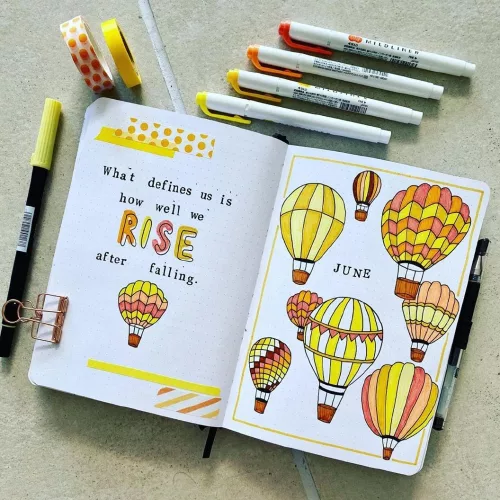 What defines us is
how well we
RISE
after falling.
JUNE
MILDLINER